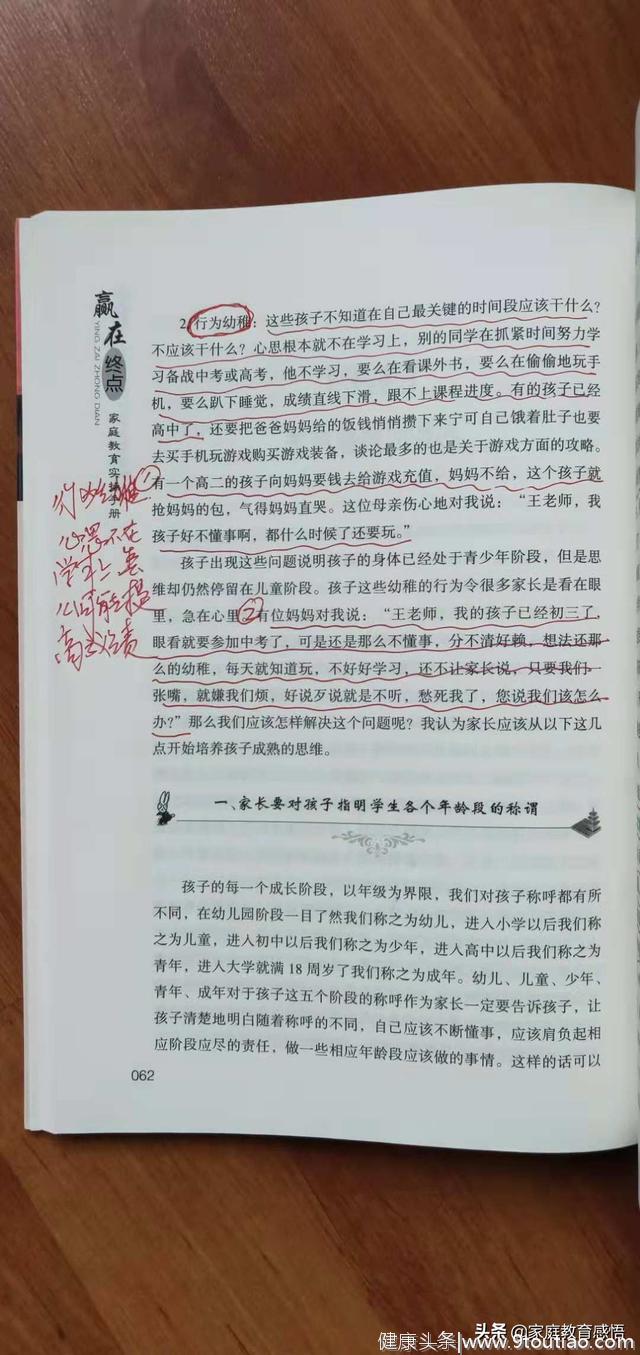 赢在终点
YING ZAI ZHONG DIAN
家庭教育实操手册
2.行为幼稚：这些孩子不知道在自己最关键的时间段应该干什么？
不应该干什么？心思根本就不在学习上，别的同学在抓紧时间努力学
习备战中考或高考，他不学习，要么在看课外书，要么在偷偷地玩手
机，要么趴下睡觉，成绩直线下滑，跟不上课程进度。有的孩子已经
高中了，还要把爸爸妈妈给的饭钱悄悄攒下来宁可自己饿着肚子也要
去买手机玩游戏购买游戏装备，谈论最多的也是关于游戏方面的攻略。
有一个高二的孩子向妈妈要钱去给游戏充值，妈妈不给，这个孩子就
抢妈妈的包，气得妈妈直哭。这位母亲伤心地对我说：“王老师，我
孩子好不懂事啊，都什么时候了还要玩。”
孩子出现这些问题说明孩子的身体已经处于青少年阶段，但是思
维却仍然停留在儿童阶段。孩子这些幼稚的行为令很多家长是看在眼
里，急在心里②有位妈妈对我说：“王老师，我的孩子已经初三了，
眼看就要参加中考了，可是还是那么不懂事，分不清好赖，想法还那
么的幼稚，每天就知道玩，不好好学习，还不让家长说，只要我们一
张嘴，就嫌我们烦，好说歹说就是不听，愁死我了，您说我们该怎么
办？”那么我们应该怎样解决这个问题呢？我认为家长应该从以下这几
点开始培养孩子成熟的思维。
①
心思不在
学习上
一、家长要对孩子指明学生各个年龄段的称谓
孩子的每一个成长阶段，以年级为界限，我们对孩子称呼都有所
不同，在幼儿园阶段一目了然我们称之为幼儿，进入小学以后我们称
之为儿童，进入初中以后我们称之为少年，进入高中以后我们称之为
青年，进入大学就满 18 周岁了我们称之为成年。幼儿、儿童、少年、
青年、成年对于孩子这五个阶段的称呼作为家长一定要告诉孩子，让
孩子清楚地明白随着称呼的不同，自己应该不断懂事，应该肩负起相
应阶段应尽的责任，做一些相应年龄段应该做的事情。这样的话可以
062
头条 @家庭教育感悟
健康头条|www.9toutiao.com